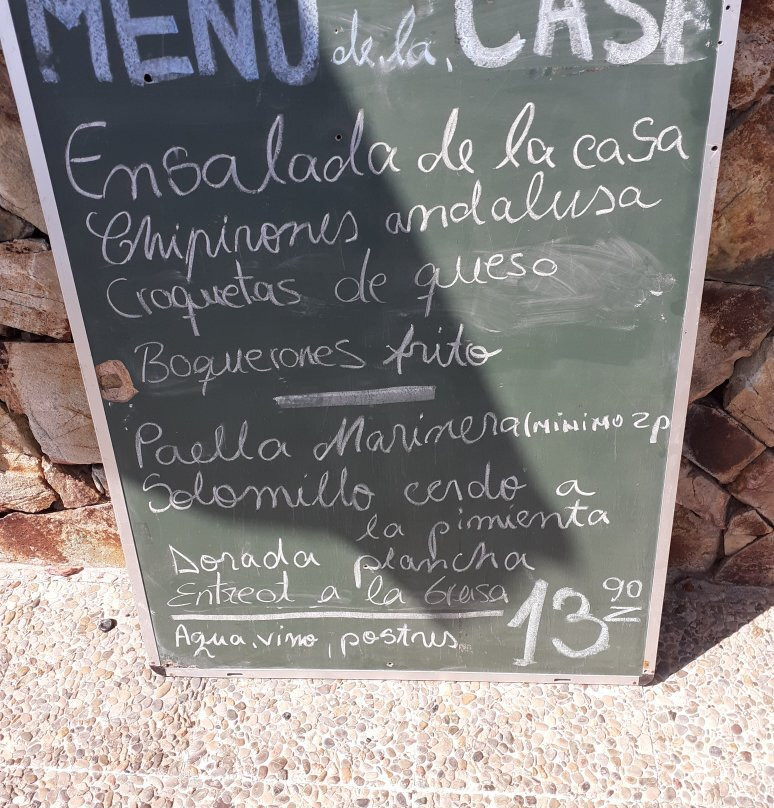 MENU de la CASA
Ensalada de la casa
Chipirones andalusa
Croquetas de queso
Boquerones frito
Paella Marinera (MINIMO 2p
Solomillo cerdo a
la pimienta
Dorada plancha
Entrecot a la brasa
Agua, vino, postres
13 90